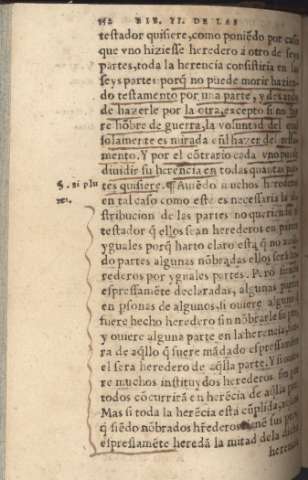 152 LIB. II. DE LAS
testador quisiere, como poniẽdo por caso
que vno hiziesse heredero a otro de seys
partes, toda la herencia consistiria en las
seys partes porq̃ no puede morir hazien-
do testamento por una parte, y dexando
de hazerle por la otra, excepto si no fue
re hõbre de guerra, la voluntad del qual
solamente es mirada eñl hazer del testa
mento. Y por el cõtrario cada vno puede
diuidir su herencia en todas quantas par
§. si plu tes quisiere. ¶ Auiẽdo muchos herederos
res. en tal caso como este es necessaria la di
stribucion de las partes no queriendo el
testador q̃ ellos sean herederos en partes
yguales porq̃ harto claro esta q̃ no
do partes algunas nõbradas ellos serã he
rederos por yguales partes. Pero siendo
espressamẽte declaradas, algunas partes
en p̃sonas de algunos, si quiere alguno
fuere hecho heredero sin nõbrarle su parte
y ouiere alguna parte en la herencia, fue
ra de aq̃llo q̃ fuere mãdado espressamẽte
el sera heredero de aq̃lla parte. Y si
re muchos instituydos herederos
todos cõcurrirã en herẽcia de aq̃lla parte
Mas si toda la herẽcia esta cũplida,
q̃ siẽdo nõbrados hrederos
espressamẽte heredã la mitad dela dicha
heren